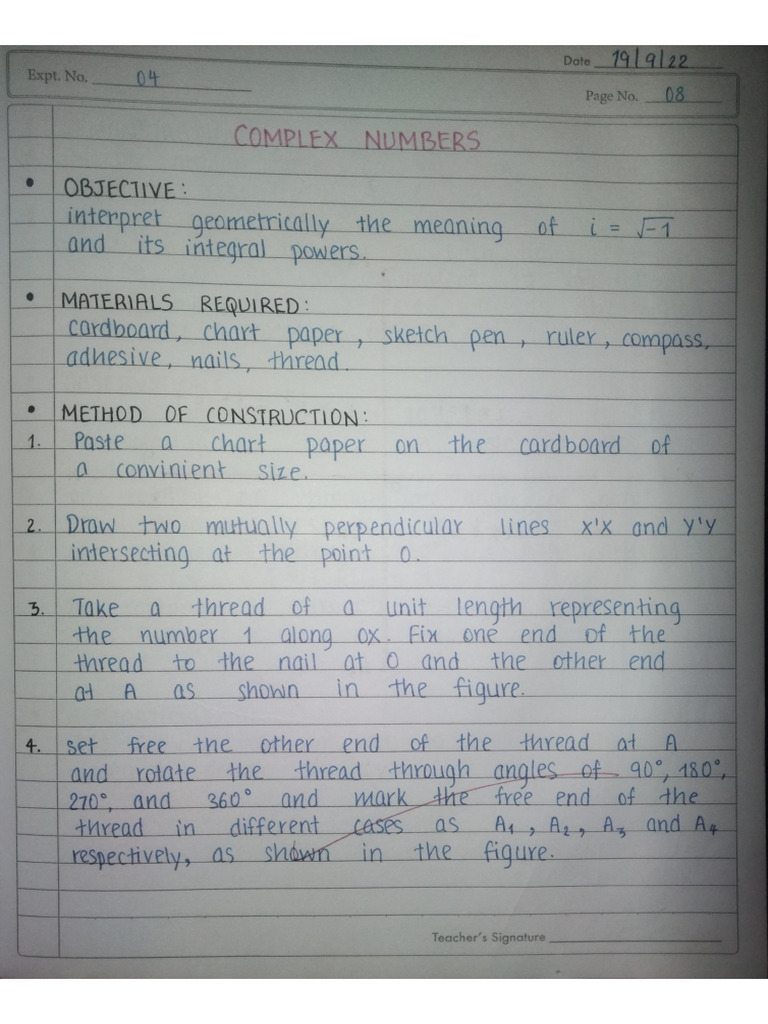 Date 19/9/22
Expt. No. 04
Page No. 08
COMPLEX NUMBERS
• OBJECTIVE:
interpret geometrically the meaning of i = √-1
and its integral powers.
• MATERIALS REQUIRED:
cardboard, chart paper, sketch pen, ruler, compass,
adhesive, nails, thread.
• METHOD OF CONSTRUCTION:
1. Paste a chart paper on the cardboard of
a convinient size.
2. Draw two mutually perpendicular lines x'x and y'y
intersecting at the point O.
3. Take a thread of a unit length representing
the number 1 along ox. Fix one end of the
thread to the nail at O and the other end
at A as shown in the figure.
4. set free the other end of the thread at A
and rotate the thread through angles of 90°, 180°,
270°, and 360° and mark the free end of the
thread in different cases as A₁, A₂, A₃ and A₄
respectively, as shown in the figure.
Teacher's Signature